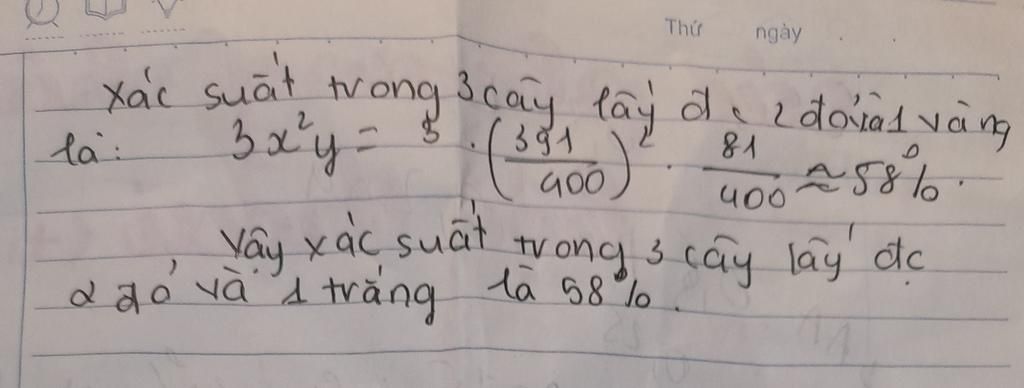 Thứ ngày
Xác suất trong 3 cây lấy đc 2 đỏ và 1 vàng
là: 3x²y = 3 . (391/400)² . 81/400 ≈ 58%.
Vậy xác suất trong 3 cây lấy đc
2 đỏ và 1 trắng là 58%.